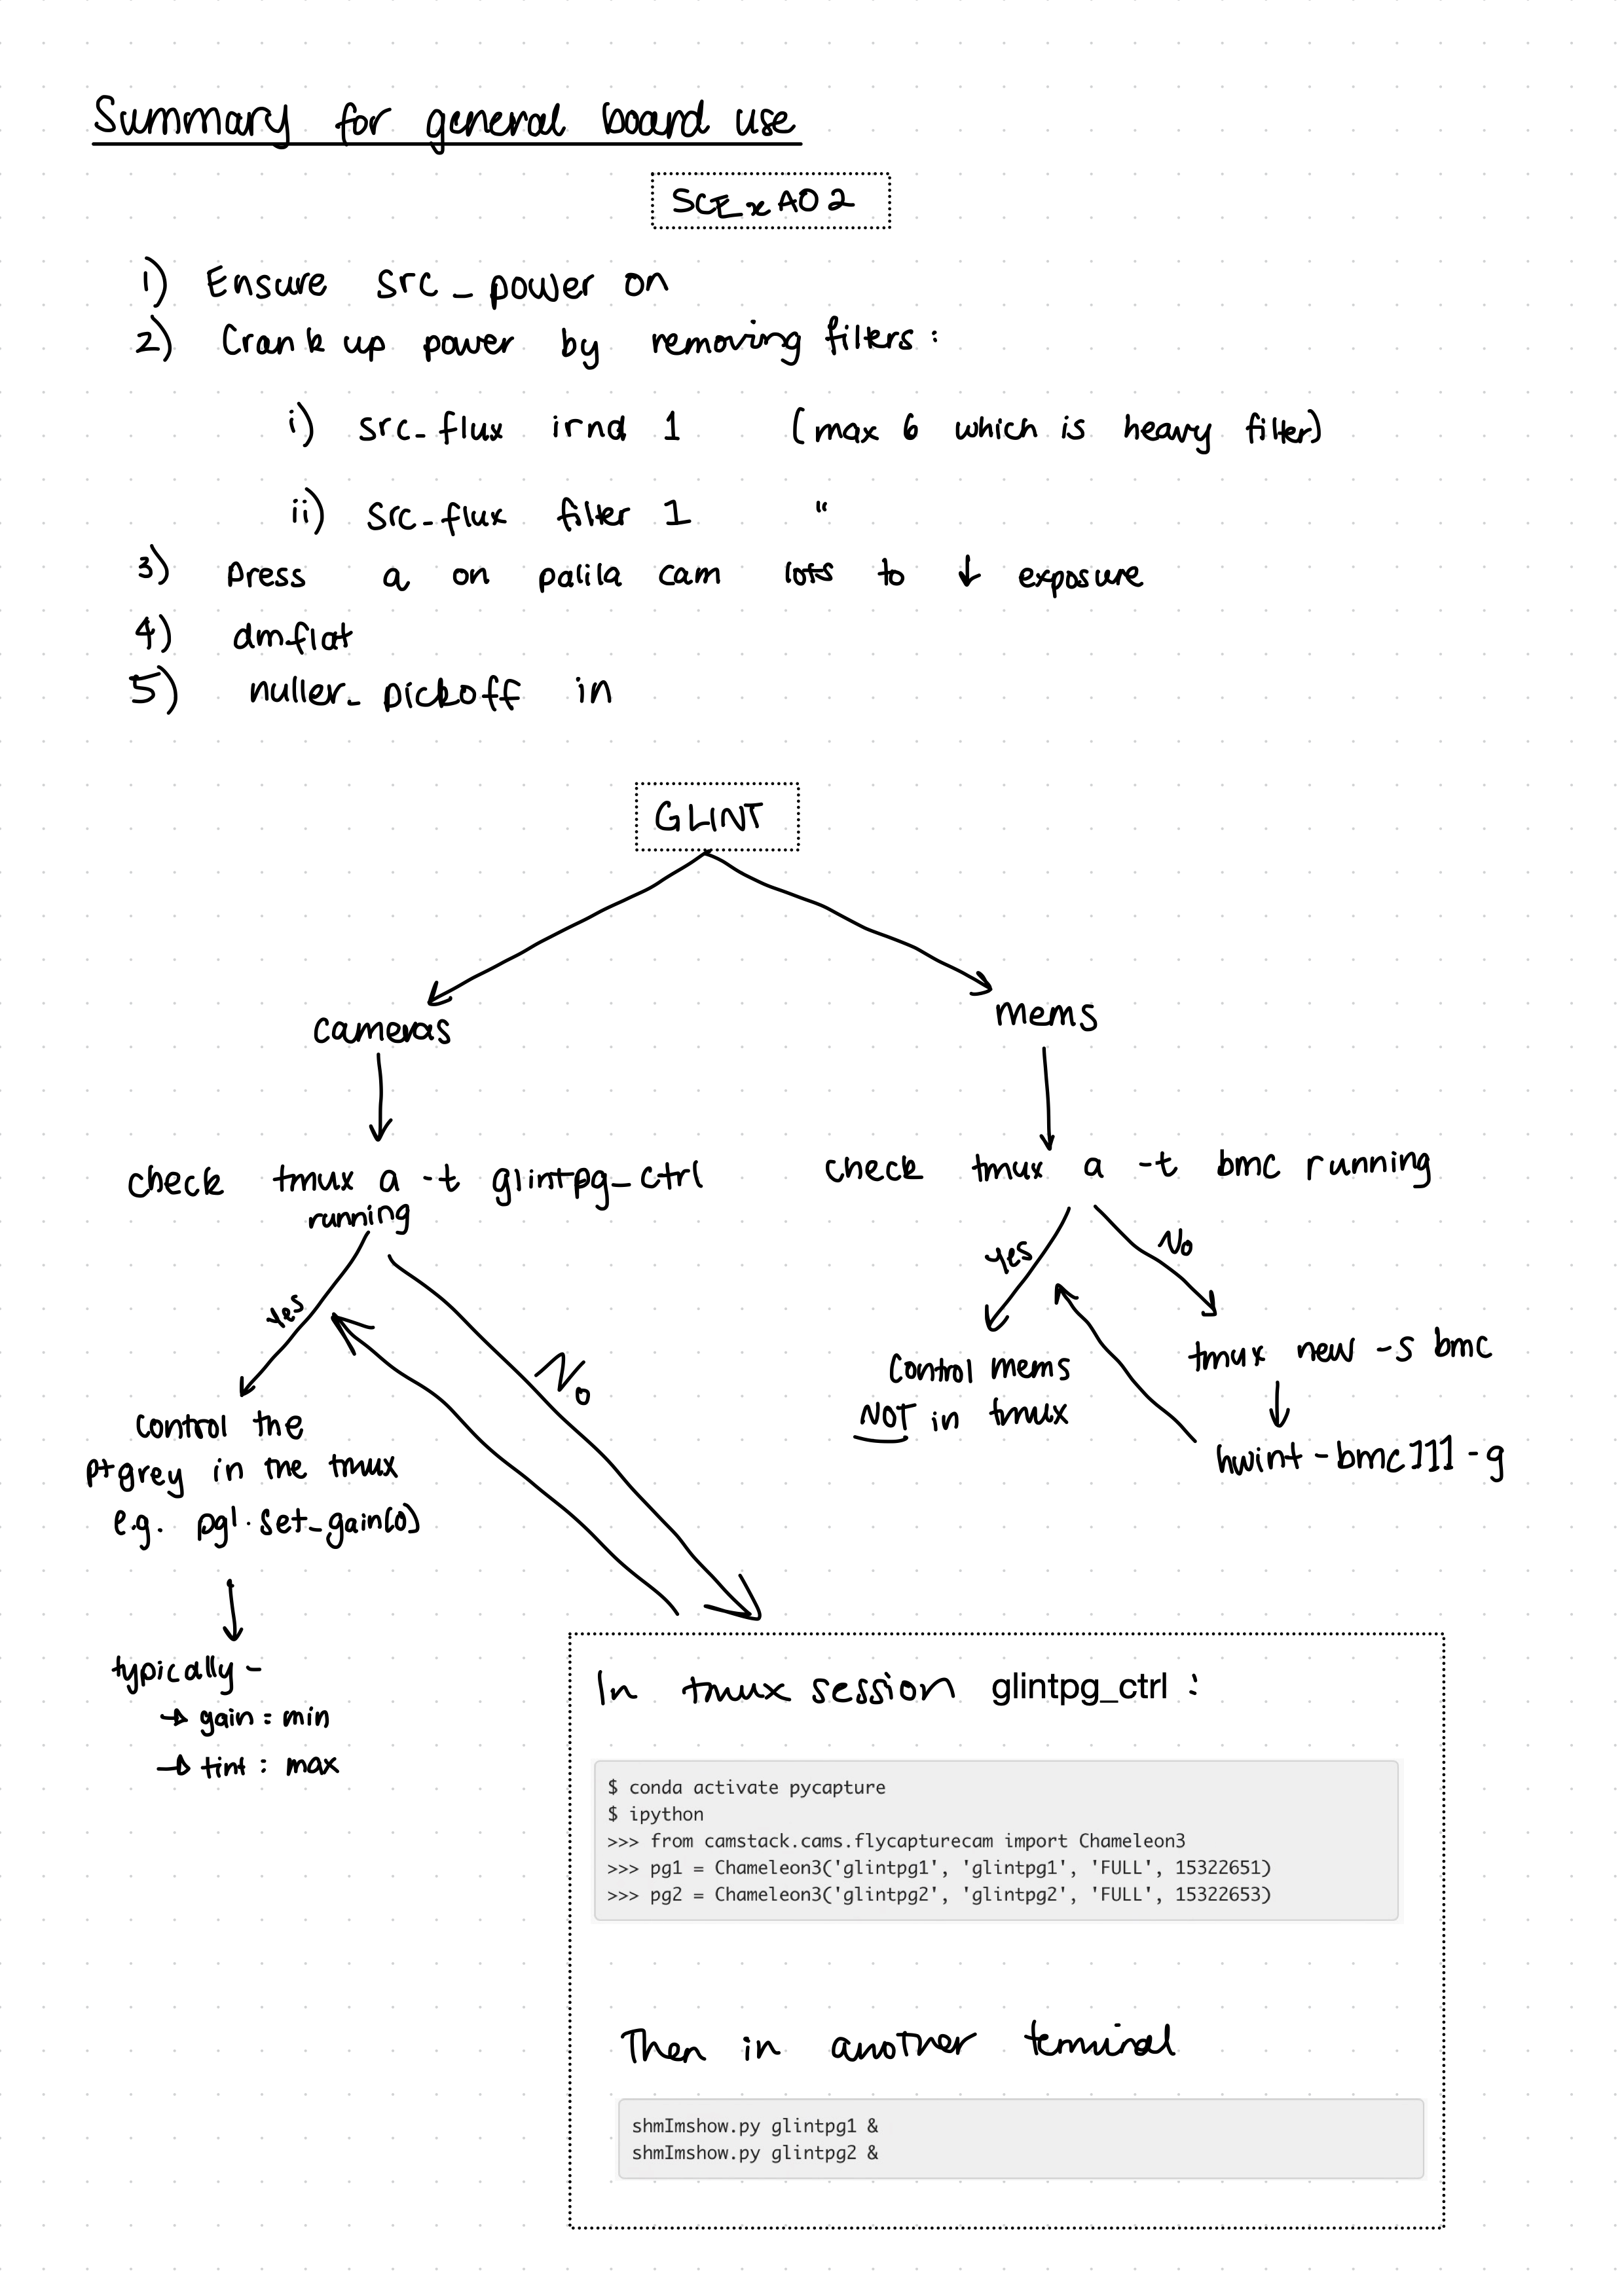 Summary for general board use
SCExAO 2
1) Ensure src_power on
2) Crank up power by removing filters:
i) src_flux irnd 1 (max 6 which is heavy filter)
ii) src_flux filter 1 "
3) Press a on palila cam lots to ↓ exposure
4) dmflat
5) nuller_pickoff in
GLINT
cameras
mems
check tmux a -t glintpg_ctrl
running
check tmux a -t bmc running
Yes
No
Yes
No
Control the
ptgrey in the tmux
e.g. pg1.set_gain(0)
typically -
→ gain: min
→ tint: max
Control mems
NOT in tmux
tmux new -s bmc
hwint-bmc111-g
In tmux session glintpg_ctrl:
$ conda activate pycapture
$ ipython
>>> from camstack.cams.flycapturecam import Chameleon3
>>> pg1 = Chameleon3('glintpg1', 'glintpg1', 'FULL', 15322651)
>>> pg2 = Chameleon3('glintpg2', 'glintpg2', 'FULL', 15322653)
Then in another teminal
shmImshow.py glintpg1 &
shmImshow.py glintpg2 &